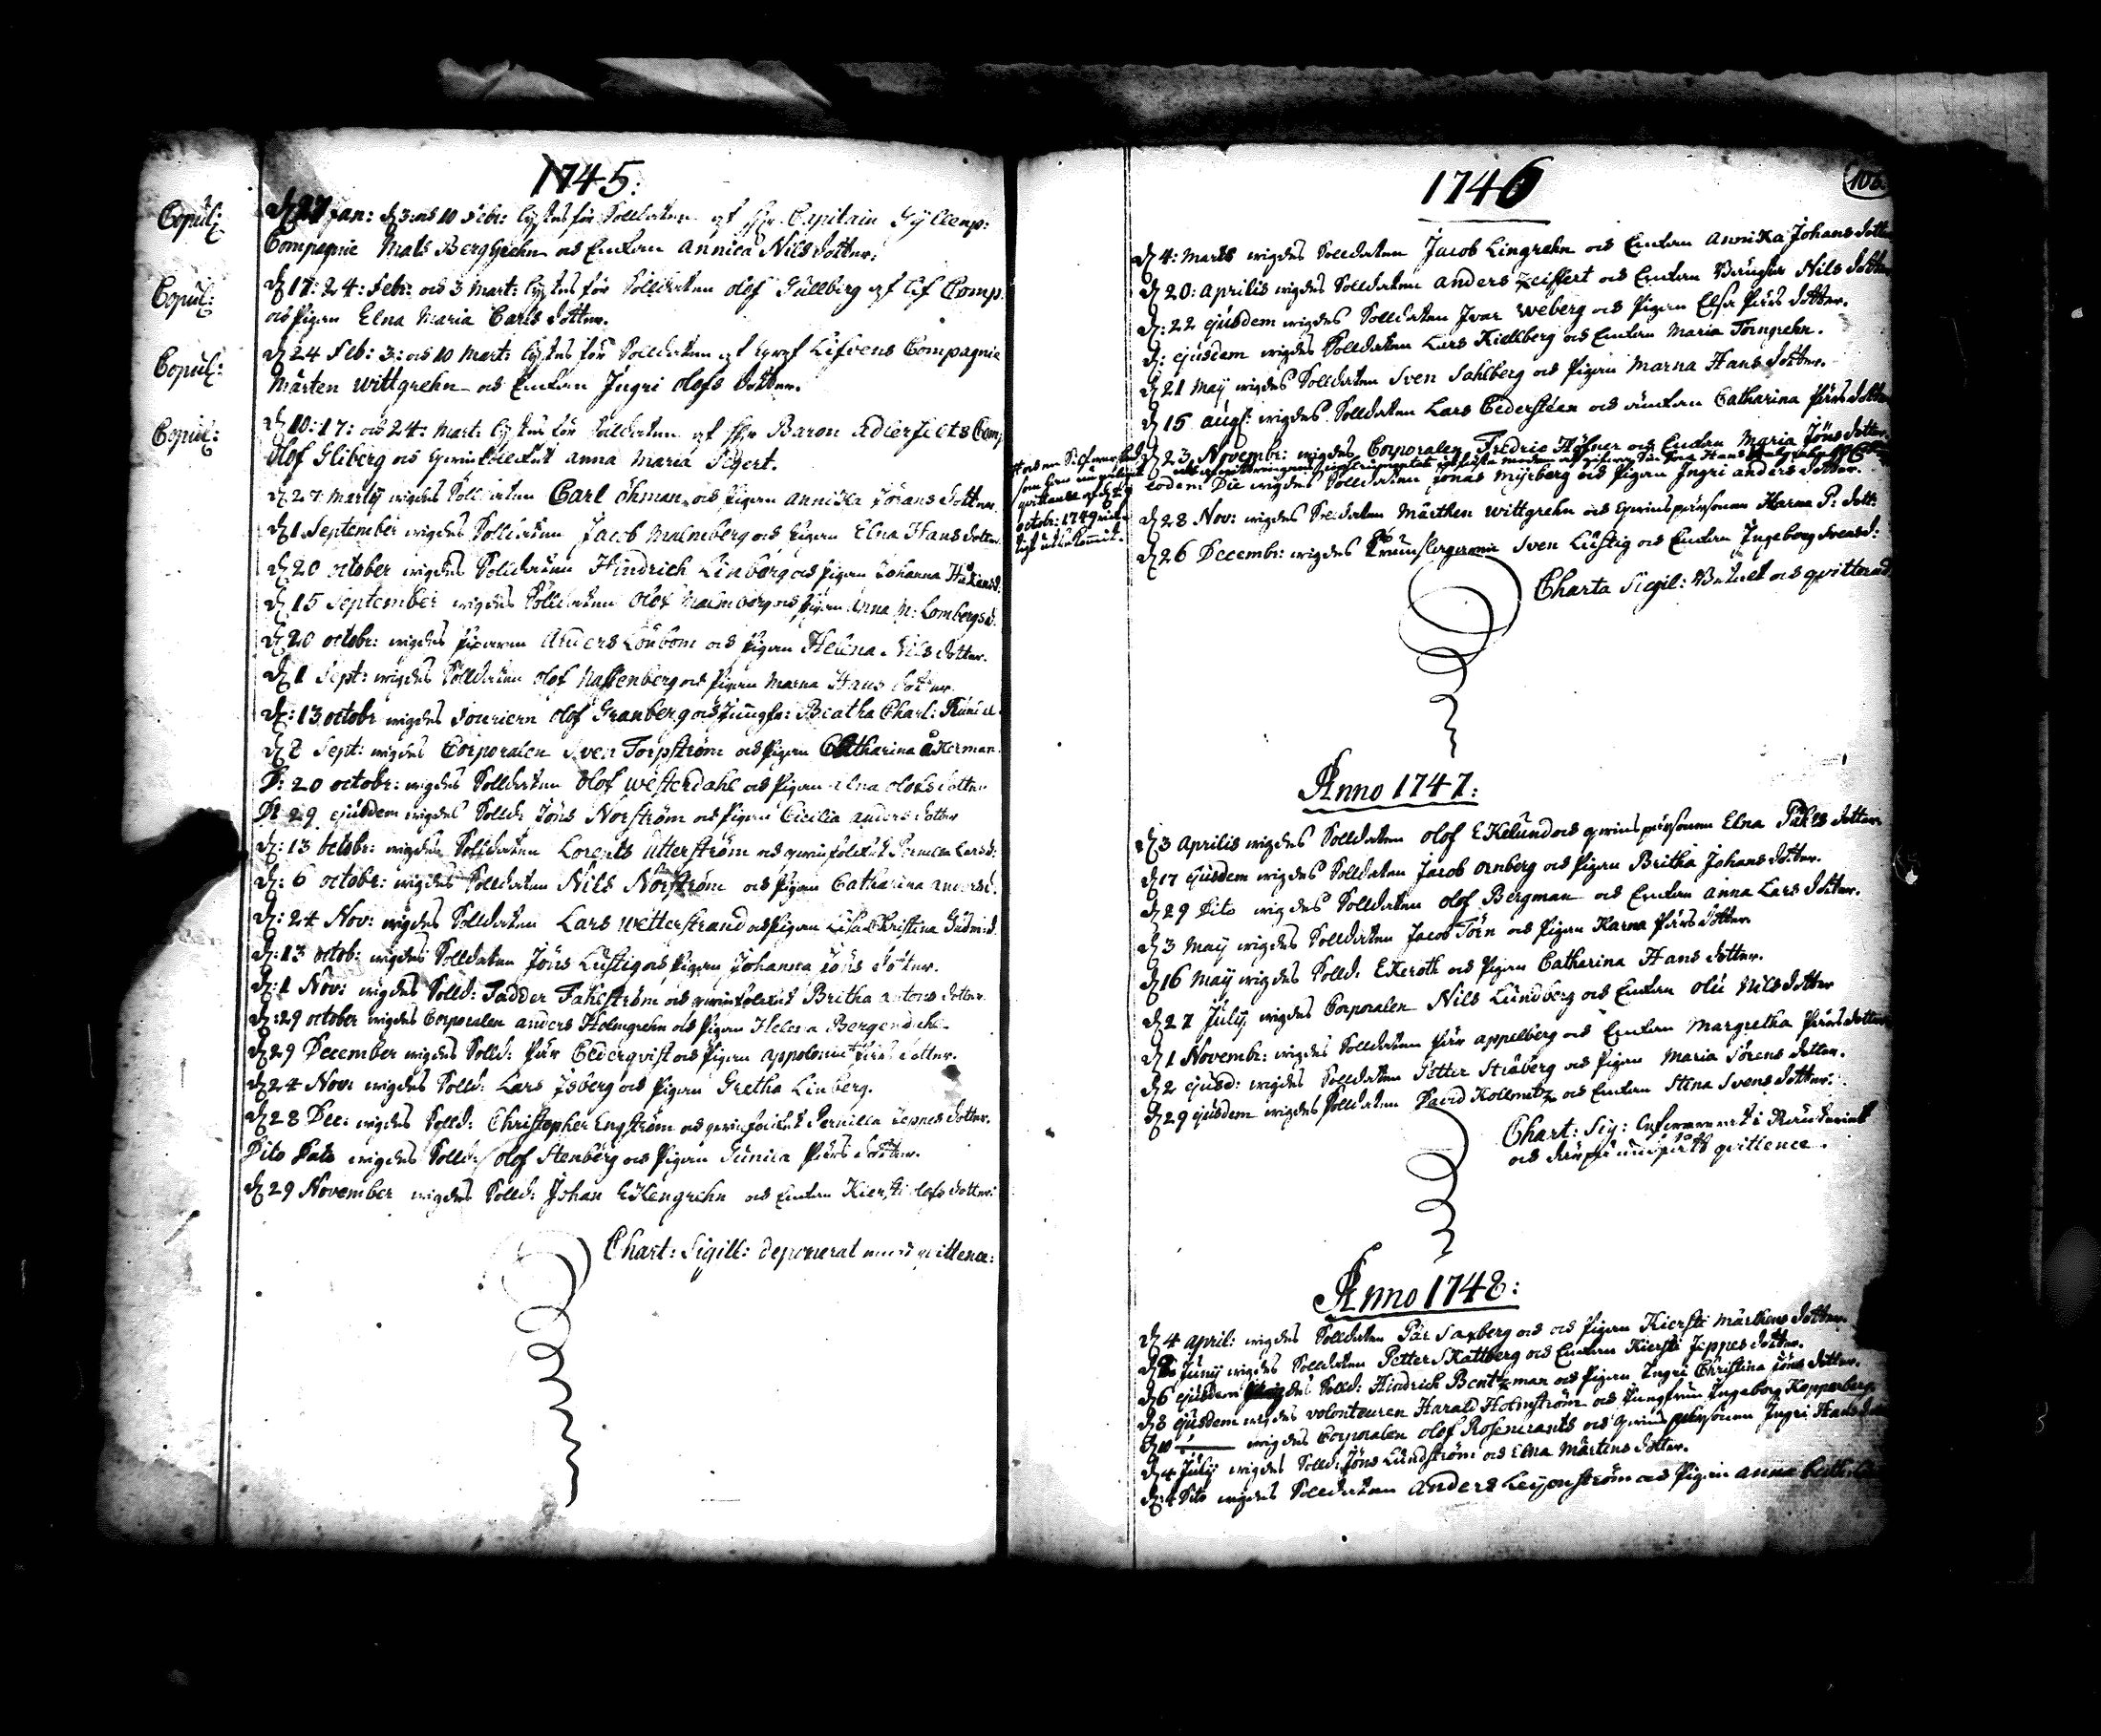 1745:
Copul:
d 27 Jan: d 3: och 10 Febr: lystes för Solldaten af Hr Capitain Gyllenp:
Compagnie Mats Berggrehn och Enckan Annica Nils dotter:
Copul:
d 17: 24: Febr: och 3 Mart: lystes för Solldaten Olof Gullberg af Lif Comp.
och Pigan Elna Maria Carls dotter.
Copul:
d 24 Feb: 3: och 10 Mart: lystes för Solldaten af Lifvens Compagnie
Mårten Wittgrehn och Enckan Ingri Olofs dotter.
Copul:
d 10: 17: och 24: Mart: lystes för Solldaten af Hr Baron Adlerfelts Comp
Olof Gliberg och qwinfolcket Anna Maria Segert.
d 27 Martij wigdes Solldaten Carl Öhman och Pigan Annicka Jörans dotter.
d 1 September wigdes Solldaten Jacob Malmberg och Pigan Elna Hans dotter.
d 20 October wigdes Solldaten Hindrich Linborg och Pigan Johanna Håkansd:
d 15 September wigdes Solldaten Olof Malmberg och Pigan Anna M: Lombergsd.
d 20 Octobr: wigdes Anders Löubom och Pigan Helena Nils dotter.
d 1 Sept: wigdes Solldaten Olof Nassenberg och Pigan Marna Hans dotter.
d: 13 Octobr wigdes Fouriern Olof Granberg och Jungfr: Beatha Charl:
d 2 Sept: wigdes Corporalen Sven Torpström och Pigan Catharina Åkerman.
D: 20 Octobr: wigdes Solldaten Olof Westerdahl och Pigan Elna Olofs dotter
D 29 ejusdem wigdes Solld: Jöns Norström och Pigan Cicilia Anders dotter
d: 13 Octobr: wigdes Solldaten Lorents Utterström och qwinfolcket Pernilla Larsd:
d: 6 Octobr: wigdes Solldaten Nils Norström och Pigan Catharina Andersd.
d: 24 Nov: wigdes Solldaten Lars Wetterstrand och Pigan Lisa Christina Gudm:d.
d: 13 Octob: wigdes Solldaten Jöns Lustig och Pigan Johanna Jöns dotter.
d: 1 Nov: wigdes Solld: Fadder Fahlström och qwinfolcket Britha Antons dotter
d: 29 October wigdes Corporalen Anders Holmgrehn och Pigan Helena Bergendahl.
d 29 December wigdes Solld: Pär Cederqvist och Pigan Appolonia Pärs dotter.
d 24 Nov: wigdes Solld: Lars Isberg och Pigan Gretha Linberg.
d 28 Dec: wigdes Solld: Christopher Engström och qwinfolcket Pernilla Jeppes dotter.
Dito Dato wigdes Solld: Olof Stenberg och Pigan Gunica Pärs dotter.
d 29 November wigdes Solld: Johan Ekengrehn och Enckan Kiersti Olofs dotter:
Chart: Sigill: deponerat med qvittence:
1746
106.
d 4: Marts wigdes Solldaten Jacob Lingrehn och Enckan Annika Johans dotter
d 20: Aprilis wigdes Solldaten Anders Zeissert och Enckan Bengta Nils dotter
d: 22 ejusdem wigdes Solldaten Ivar Weberg och Pigan Elsa Pärs dotter.
d: ejusdem wigdes Solldaten Lars Kiellberg och Enckan Maria Törngrehn.
d 21 May wigdes Solldaten Sven Sahlberg och Pigan Marna Hans dotter.
d 15 Aug: wigdes Solldaten Lars Cedersteen och Enckan Catharina Pärs dotter
d 23 Novembr: wigdes Corporalen Fredric Höfner och Enckan Maria Jöns dotter
Eodem Die wigdes Solldaten Jonas Myrberg och Pigan Ingri Anders dotter.
qvittence af d 29
Octobr: 1749
d 28 Nov: wigdes Solldaten Mårthen Wittgrehn och Qwinspersonen Karna P: dott:
d 26 Decembr: wigdes Trumslagaren Sven Lustig och Enckan Ingeborg Svensd:
Charta Sigil: Betalt och qvitterad
Anno 1747:
d 3 Aprilis wigdes Solldaten Olof Ekelund och qwinspersonen Elna Påhls dotter
d 17 Ejusdem wigdes Solldaten Jacob Ornberg och Pigan Britha Johans dotter.
d 29 Dito wigdes Solldaten Olof Bergman och Enckan Anna Lars dotter.
d 3 May wigdes Solldaten Jacob Törn och Pigan Karna Pärs dotter
d 16 May wigdes Solld: Ekeroth och Pigan Catharina Hans dotter.
d 27 July wigdes Corporalen Nils Lundberg och Enckan Olu Nils dotter
d 1 Novembr: wigdes Solldaten Pär Appelberg och Enckan Margretha Pärs dotter
d 2 ejusd: wigdes Solldaten Petter Stråberg och Pigan Maria Sörens dotter.
d 29 ejusdem wigdes Solldaten David Kollmitz och Enckan Stina Svens dotter:
Chart: Sig: Lefwererat i Ränteriet
och qvittence.
Anno 1748:
d 4 April: wigdes Solldaten Pär Saxberg och och Pigan Kiersti Mårthens dotter.
d Juny wigdes Solldaten Petter Skattberg och Enckan Kiersti Jeppes dotter.
d 6 ejusdem wigdes Solld: Hindrich Bentzman och Pigan Ingri Christina Jöns dotter.
d 8 ejusdem wigdes Volonteuren Harald Holmström och Jungfrun Ingeborg Kopparberg.
d 10 — wigdes Corporalen Olof Rosencrants och Qwinspersonen Ingri Hans
d 4 July wigdes Solld: Jöns Lundström och Elna Mårtens dotter.
d: 4 Dito wigdes Solldaten Anders Leyonström och Pigan Anna